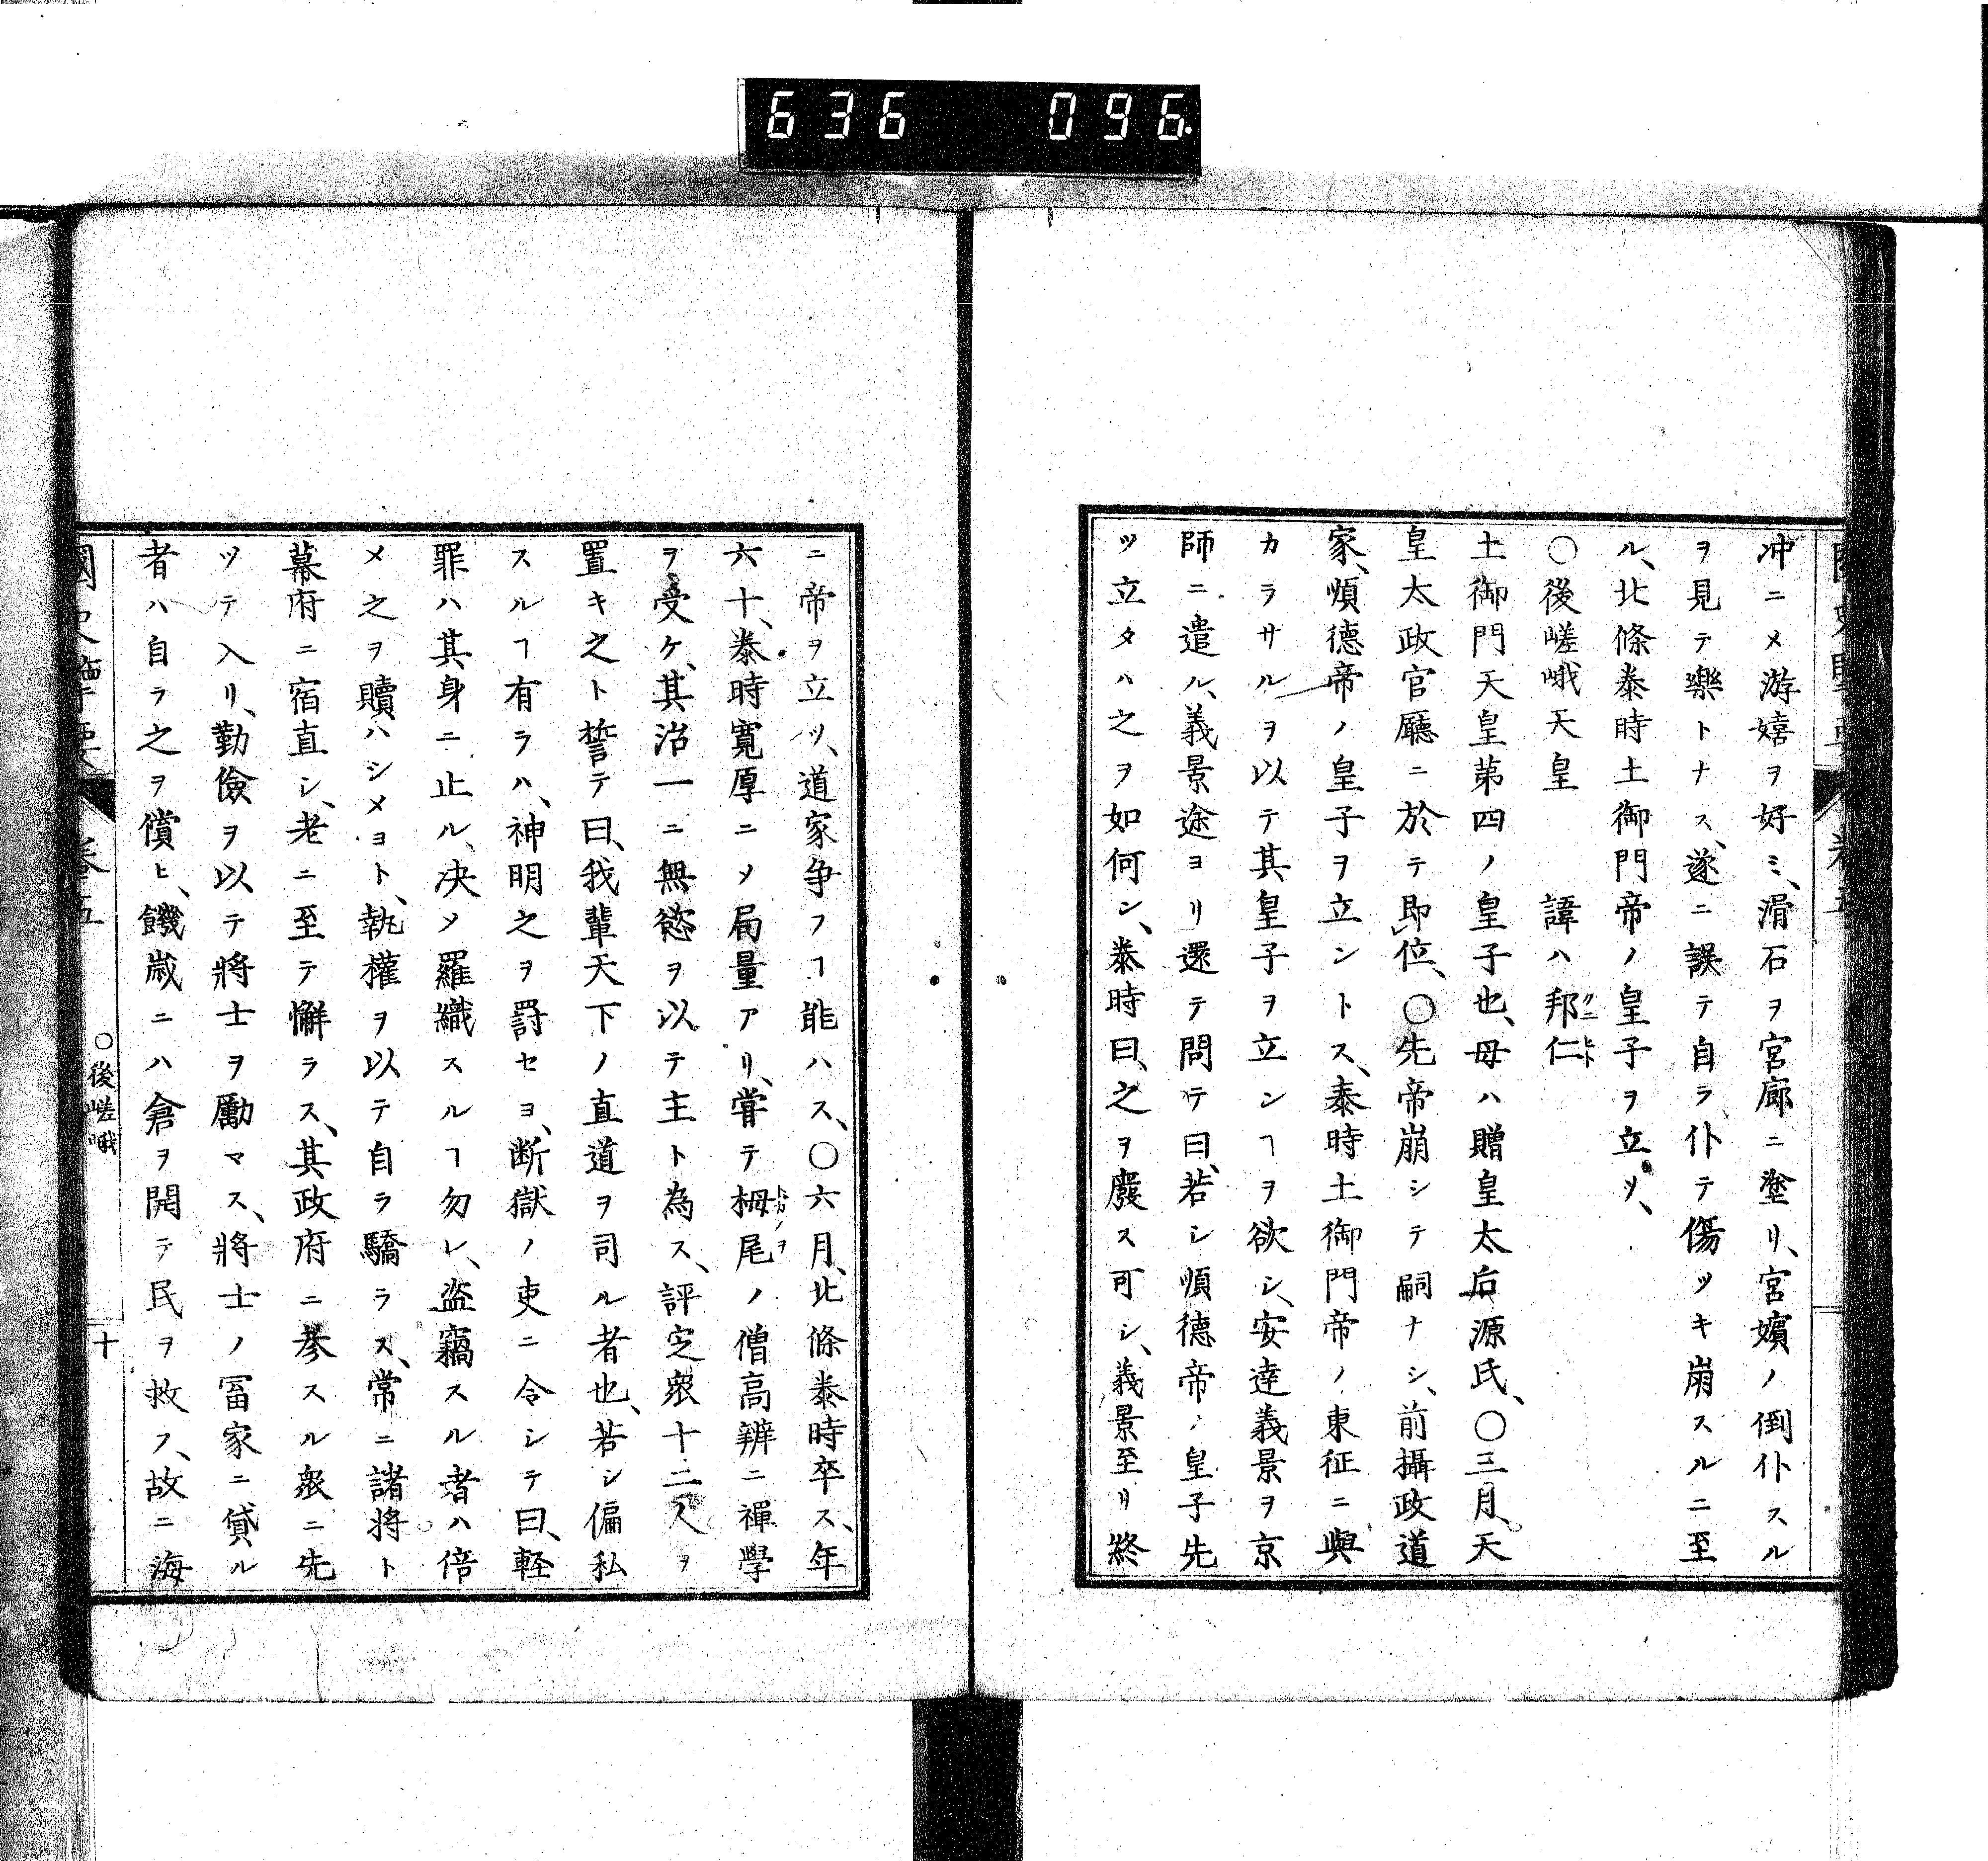 636 096
冲ニメ游嬉ヲ好ミ、滑石ヲ宮廊ニ塗リ、宮嬪ノ倒仆スル
ヲ見テ樂トナス、遂ニ誤テ自ラ仆テ傷ツキ崩スルニ至
ル、北條泰時土御門帝ノ皇子ヲ立ツ、
〇後嵯峨天皇　諱ハ邦仁
クニヒト
土御門天皇第四ノ皇子也、母ハ贈皇太后源氏、〇三月、天
皇太政官廳ニ於テ即位、〇先帝崩シテ嗣ナシ、前攝政道
家、順德帝ノ皇子ヲ立ントス、泰時土御門帝ノ東征ニ與
カラサルヲ以テ其皇子ヲ立ンヿヲ欲シ、安達義景ヲ京
師ニ遣ル、義景途ヨリ還テ問テ曰、若シ順德帝ノ皇子先
ツ立タハ之ヲ如何ン、泰時曰、之ヲ廢ス可シ、義景至リ終
ニ帝ヲ立ツ、道家争フヿ能ハス、〇六月、北條泰時卒ス、年
六十、泰時寛厚ニメ局量アリ、甞テ栂尾ノ僧高辨ニ禪學
トガノヲ
ヲ受ケ、其治一ニ無慾ヲ以テ主ト為ス、評定衆十二人ヲ
置キ之ト誓テ曰、我輩天下ノ直道ヲ司ル者也、若シ偏私
スルヿ有ラハ、神明之ヲ罸セヨ、断獄ノ吏ニ令シテ曰、軽
罪ハ其身ニ止ル、决メ羅織スルヿ勿レ、盗竊スル者ハ倍
メ之ヲ贖ハシメヨト、執權ヲ以テ自ラ驕ラス、常ニ諸將ト
幕府ニ宿直シ、老ニ至テ懈ラス、其政府ニ參スル衆ニ先
ツテ入リ、勤儉ヲ以テ將士ヲ勵マス、將士ノ冨家ニ貸ル
者ハ自ラ之ヲ償ヒ、饑歳ニハ倉ヲ開テ民ヲ救フ、故ニ海
國史 要 卷五 〇後嵯峨 十